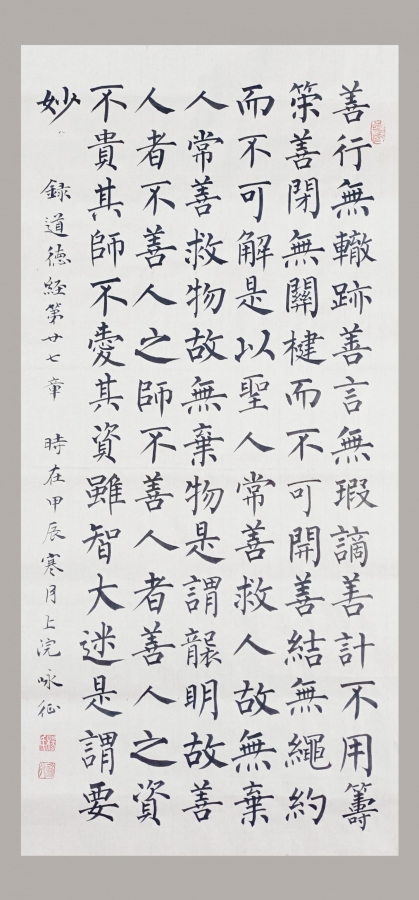 善行無轍跡善言無瑕謫善計不用籌
策善閉無關楗而不可開善結無繩約
而不可解是以聖人常善救人故無棄
人常善救物故無棄物是謂襲明故善
人者不善人之師不善人者善人之資
不貴其師不愛其資雖智大迷是謂要
妙 録道德經第廿七章 時在甲辰寒月上浣 咏征